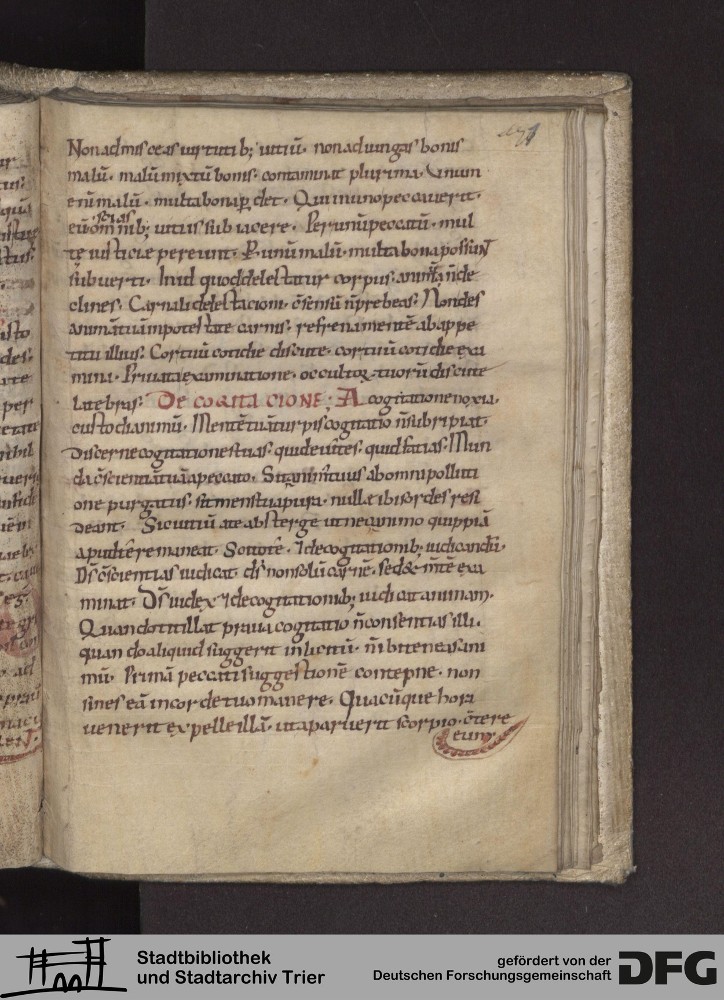 Non admisceas uirtutib; uitiũ. non adiungas bonis
malũ. malũ mixtũ bonis. contaminat plurima. Vnum
enĩ malũ. multa bona ꝑdet. Qui in uno peccauerit.
scias
eũ omnib; uitiis subiacere. Per unũ peccatũ. mul
tę iusticiæ pereunt. P unũ malũ. multa bona possunt
subuerti. In id quod delectatur corpus. animã ñ de
clines. Carnali delectacioni. c̃sensũ ñ prebeas. Non des
animã tuã in potestate carnis. refrena mentẽ ab appe
titu illius. Cor tuũ cotidie discute. cor tuũ cotidie exa
mina. Priuata examinatione. occultoꝝ tuorũ discute
latebras. DE COGITACIONE; A cogitatione noxia.
custodi animũ. Mentẽ tuã turpis cogitatio ñ subripiat.
Discerne cogitationes tuas. quid euites. quid facias. Mun
da c̃scientiã tuã a peccato. Sit animus tuus ab omni polluti
one purgatus. sit mens tua pura. nullæ ibi sordes resi
deant. Sic uitiũ a te absterge ut ne q̃ animo quippiã
apud te remaneat. Scito te. ⁊ de cogitationib; iudicandũ.
Ds̃ c̃scientias iudicat. ds̃ non solũ carnẽ. sed & mẽtẽ exa
minat. Ds̃ iudex ⁊ de cogitationib; iudicat animam.
Quando titillat praua cogitatio ñ consentias illi.
quando aliquid suggerit inlicitũ. ñ ibi teneas ani
mũ. Primã peccati suggestionẽ contepne. non
sines eã in corde tuo manere. Quacũque hora
uenerit expelle illã. ut aparuerit scorpio. c̃tere
eum.
Stadtbibliothek
und Stadtarchiv Trier
gefördert von der
Deutschen Forschungsgemeinschaft
DFG